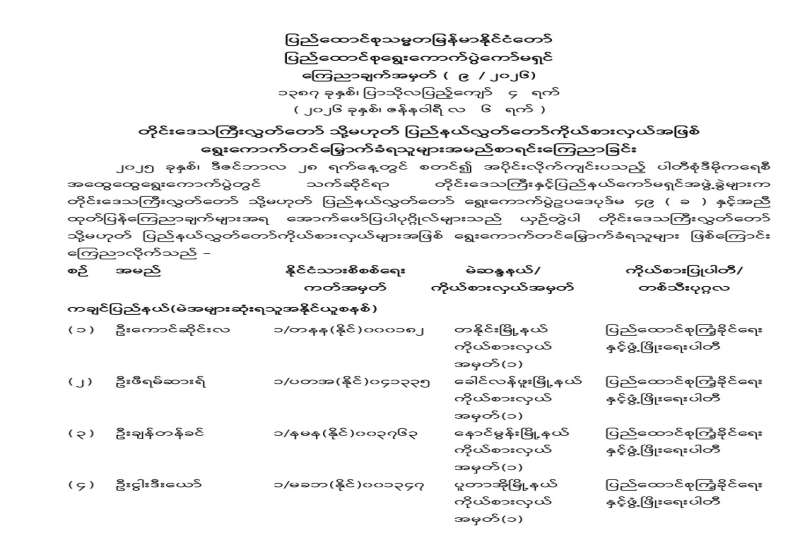 ပြည်ထောင်စုသမ္မတမြန်မာနိုင်ငံတော်
ပြည်ထောင်စုရွေးကောက်ပွဲကော်မရှင်
ကြေညာချက်အမှတ် ( ၉ / ၂၀၂၆)
၁၃၈၇ ခုနှစ်၊ ပြာသိုလပြည့်ကျော် ၄ ရက်
( ၂၀၂၆ ခုနှစ်၊ ဇန်နဝါရီ လ ၆ ရက် )
တိုင်းဒေသကြီးလွှတ်တော် သို့မဟုတ် ပြည်နယ်လွှတ်တော်ကိုယ်စားလှယ်အဖြစ်
ရွေးကောက်တင်မြှောက်ခံရသူများအမည်စာရင်းကြေညာခြင်း
၂၀၂၅ ခုနှစ်၊ ဒီဇင်ဘာလ ၂၈ ရက်နေ့တွင် စတင်၍ အပိုင်းလိုက်ကျင်းပသည့် ပါတီစုံဒီမိုကရေစီ
အထွေထွေရွေးကောက်ပွဲတွင် သက်ဆိုင်ရာ တိုင်းဒေသကြီးနှင့်ပြည်နယ်ကော်မရှင်အဖွဲ့ခွဲများက
တိုင်းဒေသကြီးလွှတ်တော် သို့မဟုတ် ပြည်နယ်လွှတ်တော် ရွေးကောက်ပွဲဥပဒေပုဒ်မ ၄၉ ( ခ ) နှင့်အညီ
ထုတ်ပြန်ကြေညာချက်များအရ အောက်ဖော်ပြပါပုဂ္ဂိုလ်များသည် ယှဉ်တွဲပါ တိုင်းဒေသကြီးလွှတ်တော်
သို့မဟုတ် ပြည်နယ်လွှတ်တော်ကိုယ်စားလှယ်များအဖြစ် ရွေးကောက်တင်မြှောက်ခံရသူများ ဖြစ်ကြောင်း
ကြေညာလိုက်သည် –
စဉ် အမည် နိုင်ငံသားစိစစ်ရေး မဲဆန္ဒနယ်/ ကိုယ်စားပြုပါတီ/
ကတ်အမှတ် ကိုယ်စားလှယ်အမှတ် တစ်သီးပုဂ္ဂလ
ကချင်ပြည်နယ်(မဲအများဆုံးရသူအနိုင်ယူစနစ်)
(၁) ဦးကောင်ဆိုင်းလ ၁/တနန(နိုင်)၀၀၀၁၈၂ တနိုင်းမြို့နယ် ပြည်ထောင်စုကြံ့ခိုင်ရေး
ကိုယ်စားလှယ် နှင့်ဖွံ့ဖြိုးရေးပါတီ
အမှတ်(၁)
(၂) ဦးဖီရမ်ဆားရ် ၁/ပတအ(နိုင်)၀၄၁၃၃၅ ခေါင်လန်ဖူးမြို့နယ် ပြည်ထောင်စုကြံ့ခိုင်ရေး
ကိုယ်စားလှယ် နှင့်ဖွံ့ဖြိုးရေးပါတီ
အမှတ်(၁)
(၃) ဦးချန်တန်ခင် ၁/နမန(နိုင်)၀၀၃၇၆၃ နောင်မွန်းမြို့နယ် ပြည်ထောင်စုကြံ့ခိုင်ရေး
ကိုယ်စားလှယ် နှင့်ဖွံ့ဖြိုးရေးပါတီ
အမှတ်(၁)
(၄) ဦးငွါးဒီးယော် ၁/မခဘ(နိုင်)၀၀၁၃၄၇ ပူတာအိုမြို့နယ် ပြည်ထောင်စုကြံ့ခိုင်ရေး
ကိုယ်စားလှယ် နှင့်ဖွံ့ဖြိုးရေးပါတီ
အမှတ်(၁)